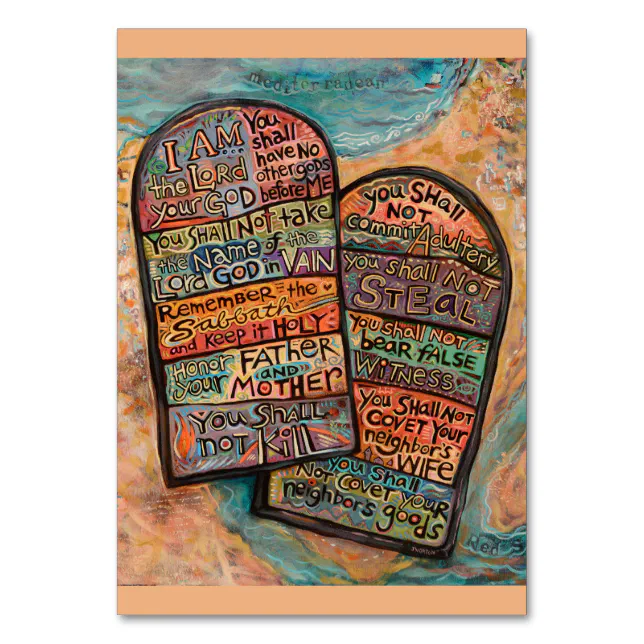 mediterradean
I AM...
the LORD
your GOD
You
shall
have NO
other gods
before ME
You SHALL NOT take
the Name of the
LORD GOD in VAIN
Remember the
Sabbath
and keep it HOLY
Honor FATHER
your AND
MOTHER
You SHALL
not Kill
you SHALL
NOT
commit Adultery
you shall NOT
STEAL
You shall NOT
bear FALSE
WITNESS
You SHALL NOT
COVET YOUR
neighbor's
WIFE
You SHALL
NOT COVET YOUR
neighbors goods
Red